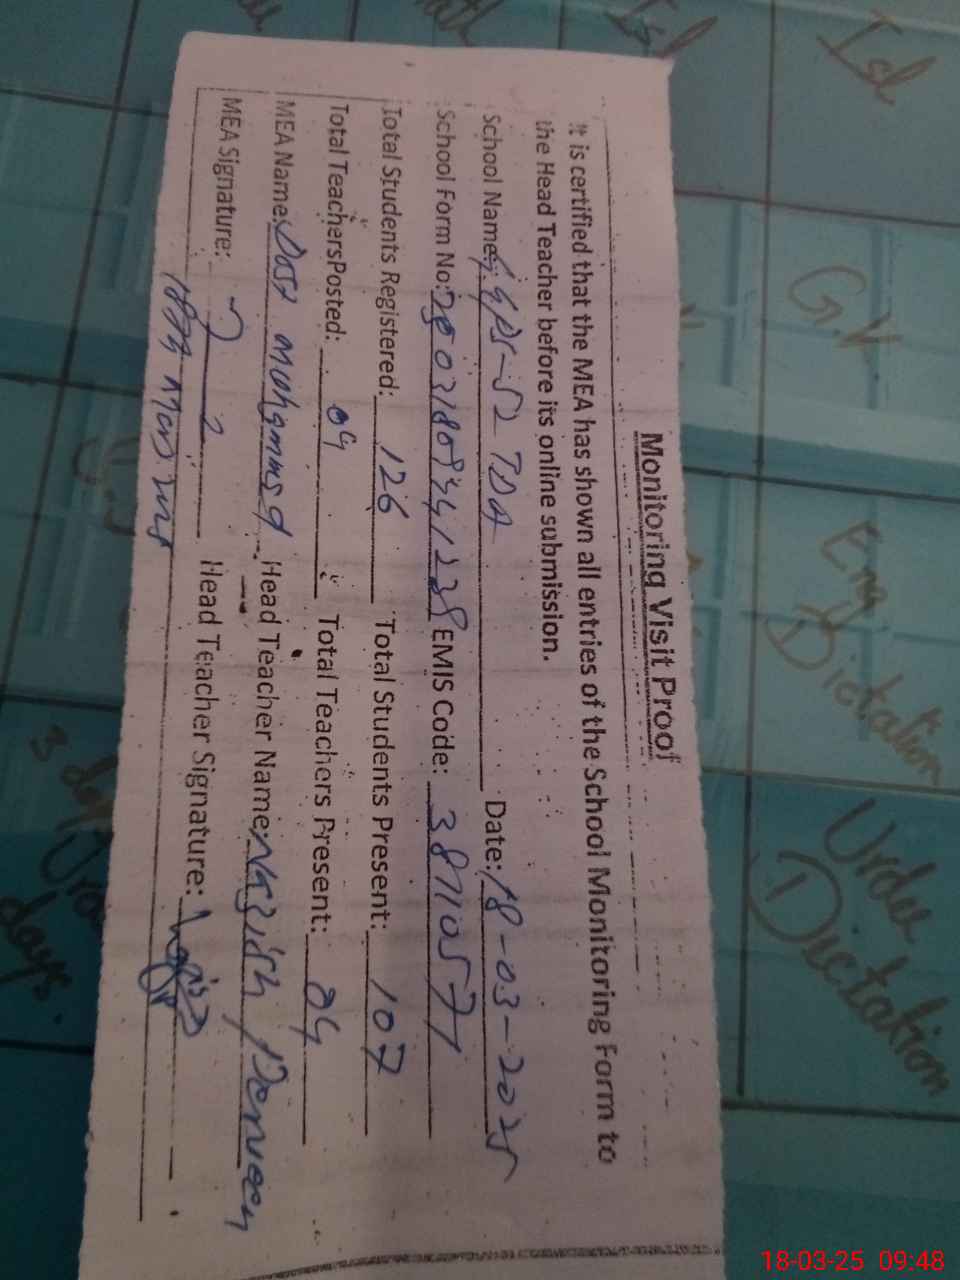 Monitoring Visit Proof
It is certified that the MEA has shown all entries of the School Monitoring Form to
the Head Teacher before its online submission.
School Name: GPS-52 TDA Date: 18-03-2025
School Form No: EMIS Code: 38710577
Total Students Registered: 126 Total Students Present: 107
Total Teachers Posted: 04 Total Teachers Present: 04
MEA Name: Dost Mohammad Head Teacher Name: Parveen
MEA Signature: Head Teacher Signature:
Isl
G.K
Eng Dictation
Urdu Dictation
3 days
days
18-03-25 09:48